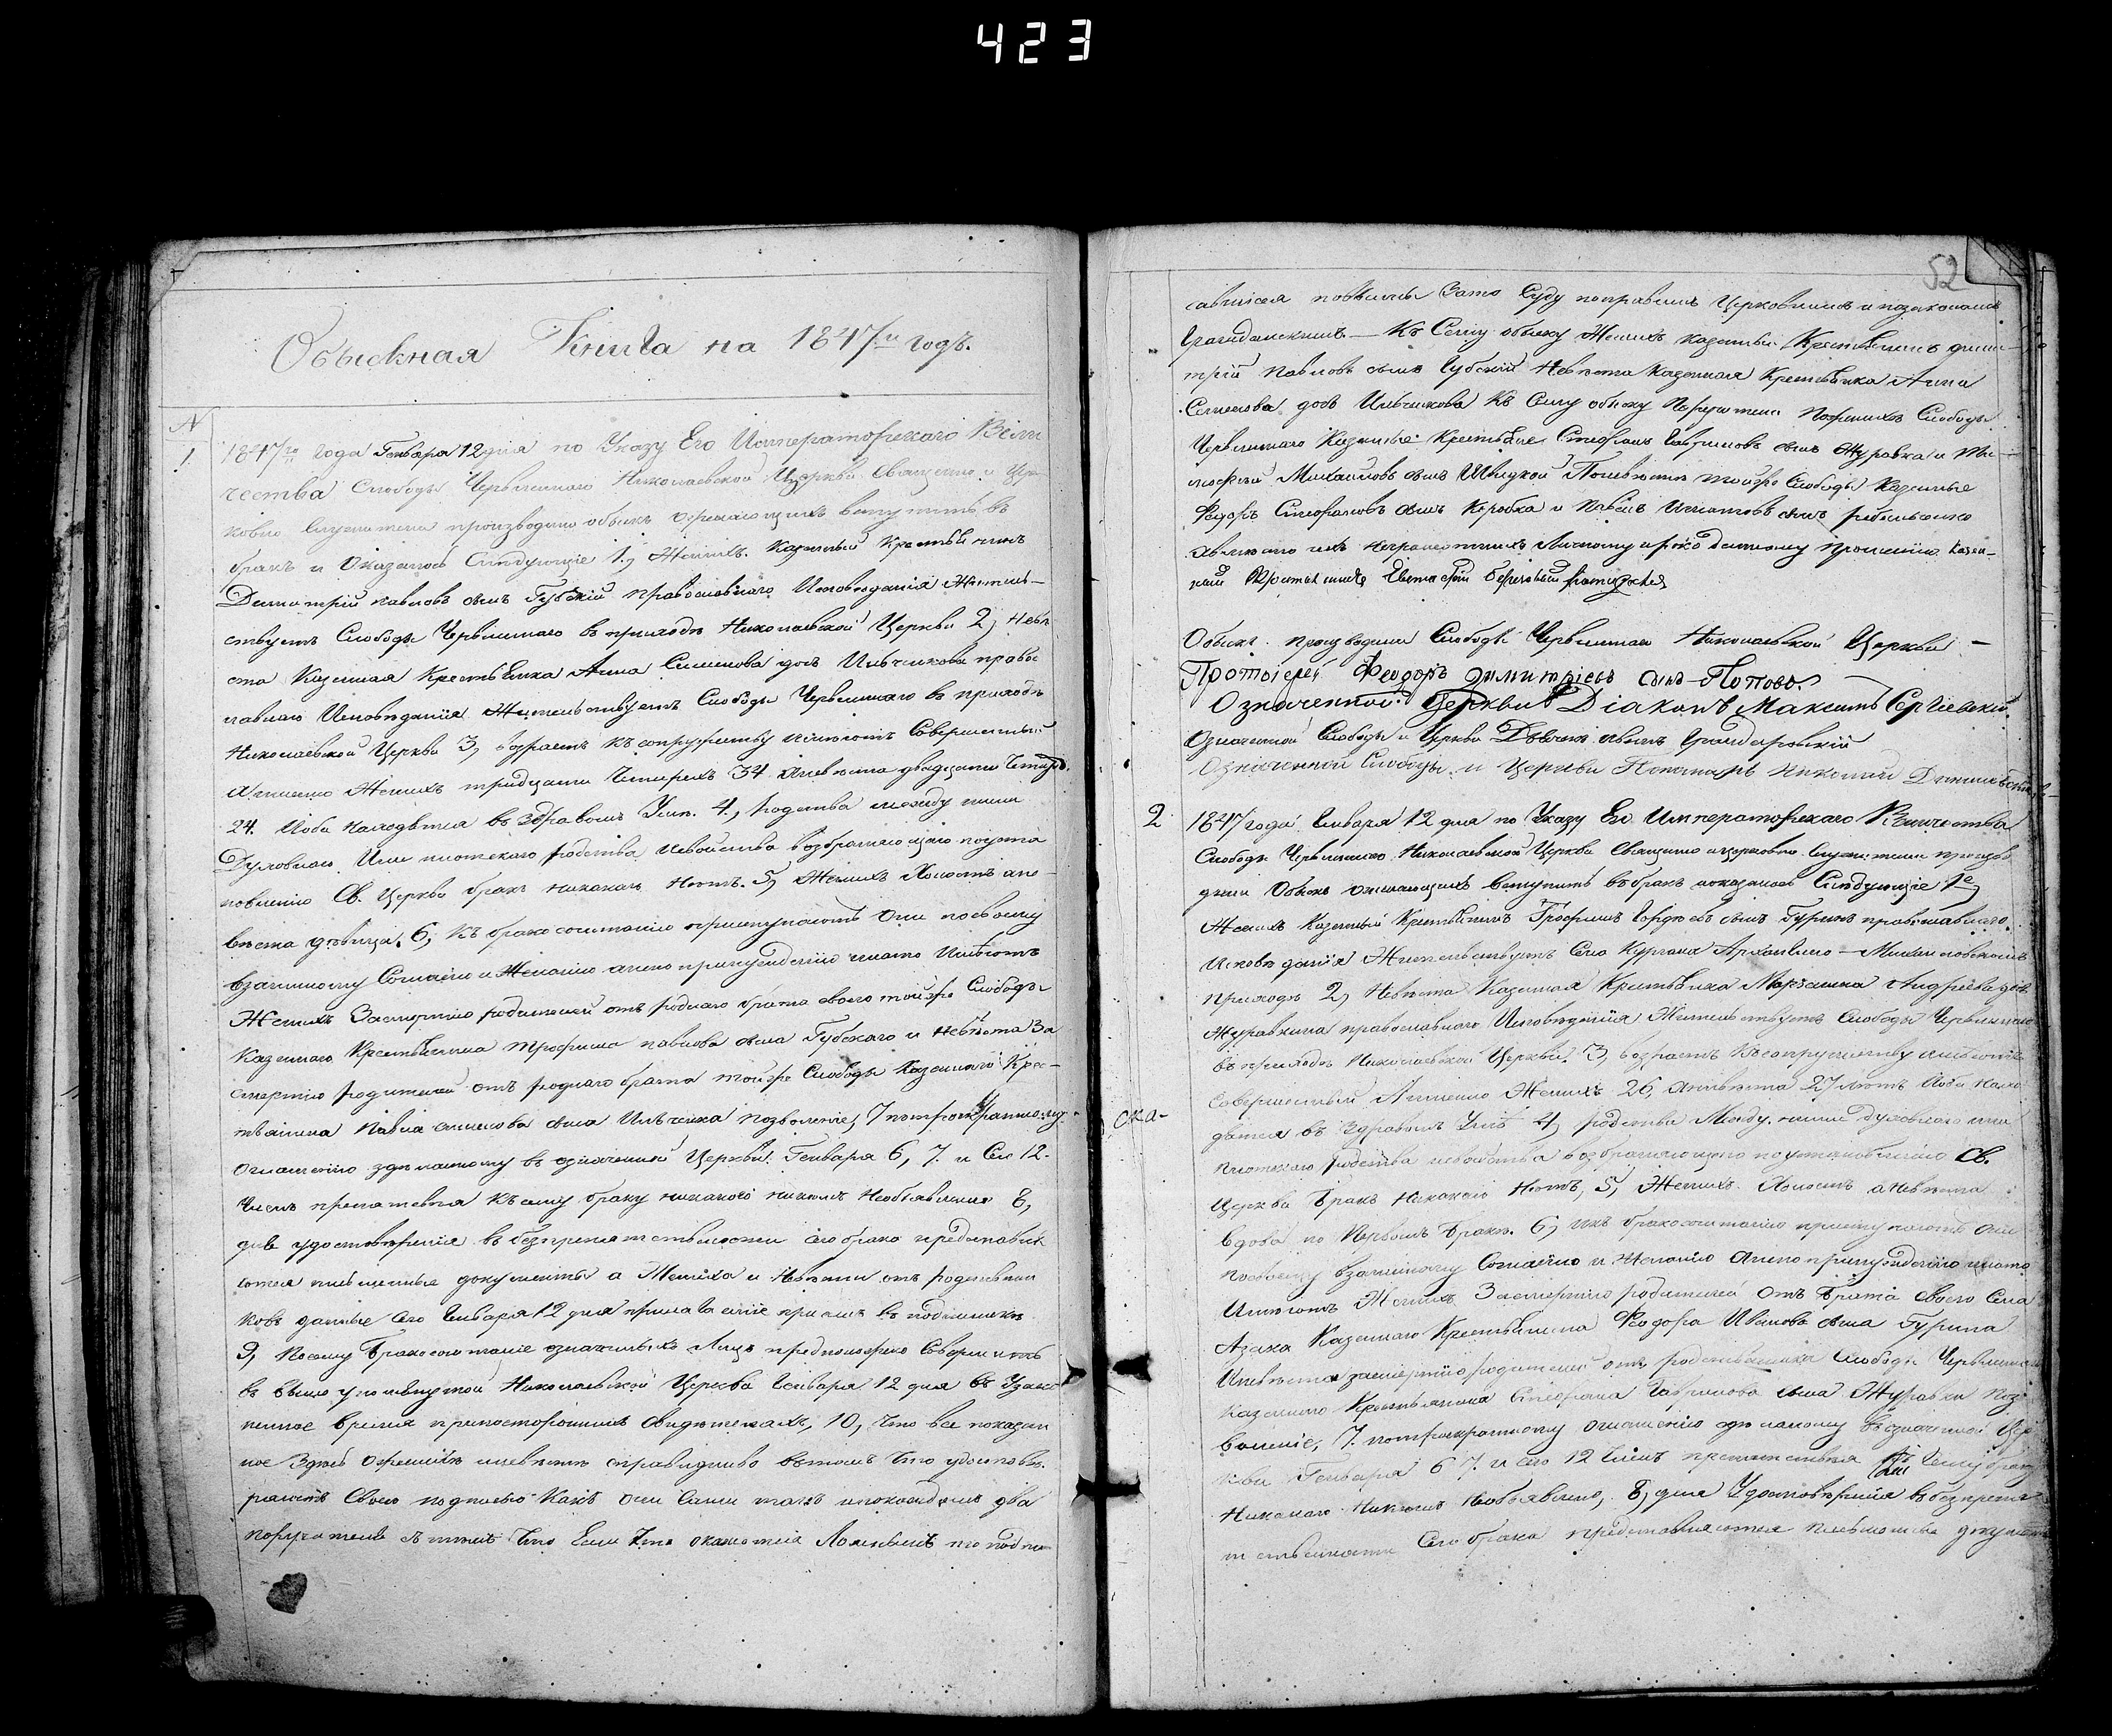 423
Обыскная Книга на 1847й годъ.
N
1. 1847го года Генваря 12 дня по Указу Его Императорскаго Вели
чества Слободы Червленнаго Николаевской Церкви Священно и Цер
ковно Служители производили обыскъ о желающихъ вступить въ
бракъ и оказалось Слѣдующіе 1, Женихъ. Казенный Крестьянинъ
Димитрій павловъ сынъ Губскій православнаго Исповѣданія Житель-
ствуетъ Слободы Червленнаго в приходѣ Николаевской Церкви 2, Невѣ
ста Казенная Крестьянка Анна Семенова дочь Ильченкова право
славнаго Исповѣданія Жительствуетъ Слободы Червленнаго в приходѣ
Николаевской Церкви 3, возрастъ къ супружеству имѣютъ Совершенный
А именно Женихъ тридцати Четырехъ 34 а невѣста двадцати Четырехъ
24. И оба находятся въ Здравомъ Умѣ. 4, родства между ними
Духовнаго Или плотскаго родства, и свойства возбраняющаго по уста
новленію Св. Церкви бракъ никакаго Нѣтъ. 5, Женихъ Холостъ а не
вѣста дѣвица. 6, къ бракосочетанію приступаютъ Они по своему
взаимному Согласію и Желанію а не по принужденію на то Имѣютъ
Женихъ За смертію родителей отъ роднаго брата своего той же Слободы
Казеннаго Крестьянина трофима павлова сына Губскаго и невѣста За
смертію родителей отъ роднаго брата той же Слободы Казеннаго Крес-
тьянина Павла семенова сына Ильченка позволеніе, 7 по троекратному
оглашенію здѣланному въ означенной Церкви. Генваря 6, 7. и Сего 12.
Числъ препятствія къ сему браку никакого никемъ Необъявлено 8,
для удостовѣренія въ безпрепятственности сего брака представля
ются письменные документы а Жениха и Невѣсты отъ родственни
ковъ данные сего Генваря 12 дня
9, Посему бракосочетаніе означенныхъ Лицъ предположено Совершить
в выше упомянутой Николаевской Церкви Генваря 12 дня въ Узако
ненное время при постороннихъ свидѣтеляхъ, 10, Что все показан
ное Здѣсь о женихѣ и невѣстѣ справидливо въ томъ Что удостовѣ-
ряютъ Своею подписью Какъ они Сами такъ и по каждомъ два
поручителя съ тѣмъ Что Если Что окажется Ложнымъ то подпи
52
савшіеся повинны Зато Суду по правилъ Церковнымъ и по законамъ
Гражданскимъ. — Къ Сему обыску Женихъ казенный Крестьянинъ дими
трій павловъ сынъ Губскій Невѣста Казенная Крестьянка Анна
Семенова дочь Ильченкова Къ Сему обыску Поручители По женихѣ Слободы
Червленнаго Казенные Крестьяне Стефанъ Гавриловъ сынъ Журавка и Ти
мофей Михаиловъ сынъ Швидкой По невѣстѣ той же Слободы Казенные
Федоръ Стефановъ сынъ Коробка и Павелъ Игнатовъ сынъ
а вмѣсто ихъ неграмотныхъ По личному и рукоданному прошенію. казен-
ный Крестьянинъ
Обыскъ производили Слободы Червленнаго Николаевской Церкви —
Протоіерей Феодоръ Димитріевъ сынъ Поповъ.
Означенной Церкви Діаконъ Максимъ Сергіевскій.
Означенной Слободы и Церкви Дьячекъ
Означенной Слободы и Церкви Пономарь Николай
2 1847 года Генваря 12 дня по Указу Его Императорскаго Величества
Слободы Червленнаго Николаевской Церкви Священно и церковно Служители произво
дили Обыскъ о желающихъ вступить въ бракъ и оказалось Слѣдующіе 1е,
Женихъ Казенный Крестьянинъ Трофимъ Гордѣевъ сынъ Гуринъ православнаго.
Исповѣданія Жительствуетъ Села Кургана Архангело-Михаиловскомъ
Приходѣ 2, Невѣста Казенная Крестьянка Марѳа Андреева дочь
Журавкина православнаго Исповѣданія Жительствуетъ Слободы Червленнаго
въ приходѣ Николаевской Церкви, 3, возрастъ къ супружеству имѣютъ
Совершенный А именно Женихъ 26, а невѣста 27 лѣтъ И оба нахо
дятся въ Здравомъ Умѣ 4, родства Между ними духовнаго или
плотскаго родства и свойства возбраняющаго по установленію Св.
Церкви бракъ никакаго Нѣтъ, 5, Женихъ Холостъ а невѣста
вдова по Первомъ бракѣ. 6, и къ бракосочетанію приступаютъ они
по своему взаимному Согласію и Желанію а не по принужденію и на то
Имѣютъ Женихъ За смертію родителей отъ брата своего Села
Казеннаго Крестьянина Феодора Иванова сына Гурина
И невѣста за смертію родителей отъ родственника Слободы Червленнаго
Казеннаго Крестьянина Стефана Гаврилова сына Журавки поз
воленіе, 7. по троекратному оглашенію здѣланному въ означенной Цер
кви Генваря 6 7. и сего 12 Числъ препятствія къ Сему браку
Никакого Никемъ Необъявлено, 8, для Удостовѣренія въ безпрепя
тственности Сего брака представляются письменные документы
ска-